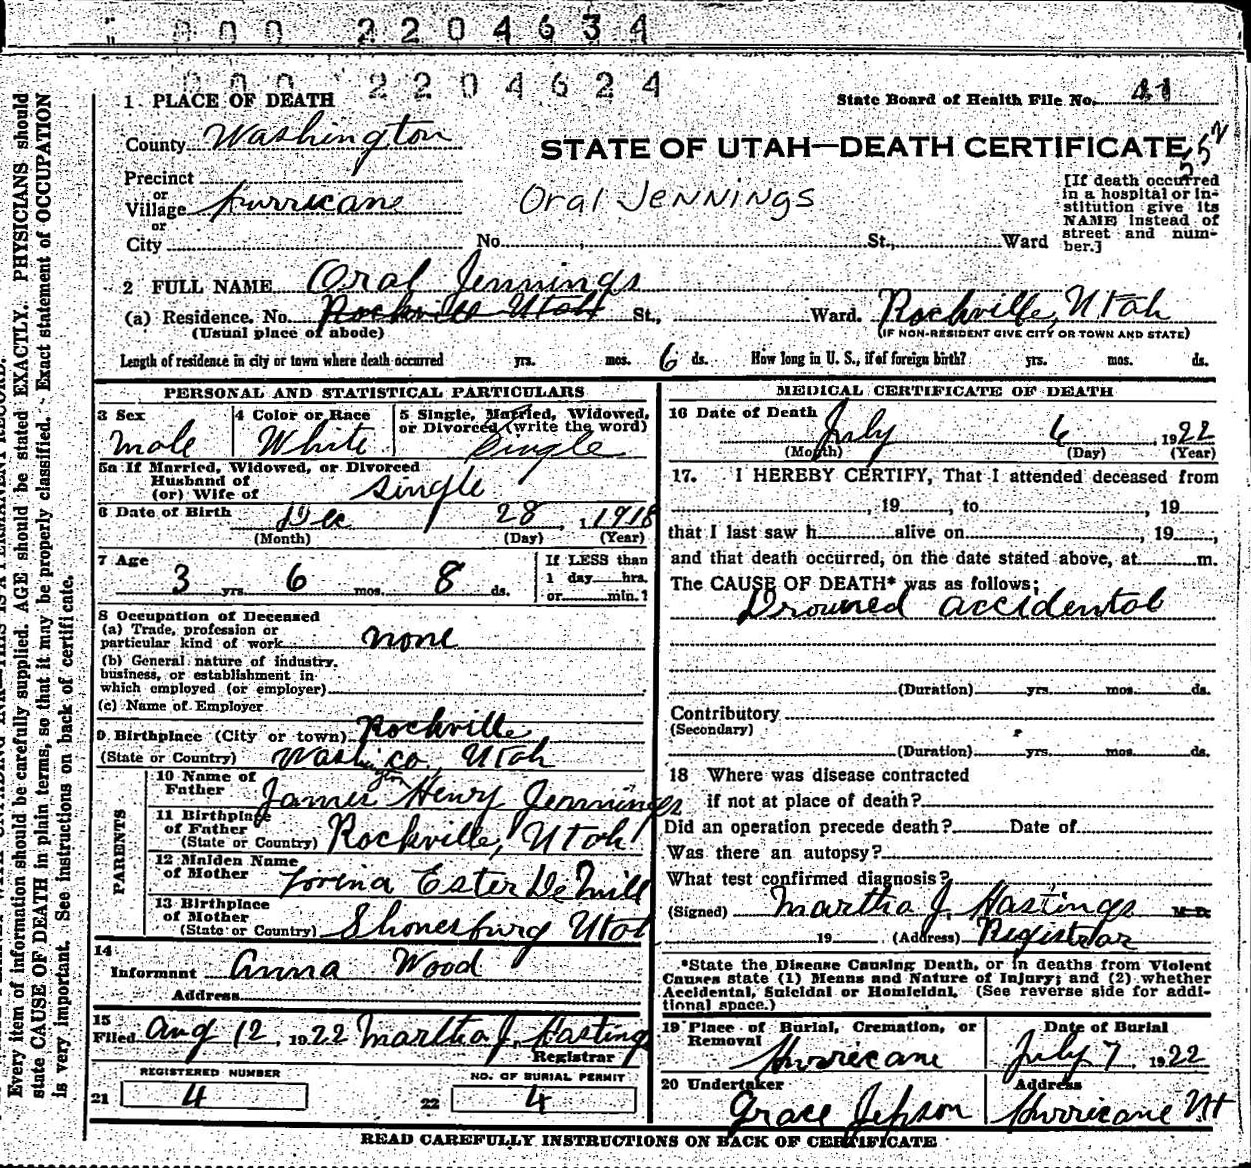 000 2204634
000 2204624
1 PLACE OF DEATH
State Board of Health File No. 41
County Washington
STATE OF UTAH—DEATH CERTIFICATE
552
Precinct
or
Village Hurricane
or
City No. St., Ward
Oral Jennings
[If death occurred
in a hospital or in-
stitution give its
NAME instead of
street and num-
ber.]
2 FULL NAME Oral Jennings
(a) Residence. No. Rockville Utah St., Ward. Rockville, Utah
(Usual place of abode) (IF NON-RESIDENT GIVE CITY OR TOWN AND STATE)
Length of residence in city or town where death occurred yrs. mos. 6 ds. How long in U. S., if of foreign birth? yrs. mos. ds.
PERSONAL AND STATISTICAL PARTICULARS
3 Sex
male
4 Color or Race
White
5 Single, Married, Widowed,
or Divorced (write the word)
Single
5a If Married, Widowed, or Divorced
Husband of
(or) Wife of
single
6 Date of Birth Dec 28, 1 1918
(Month) (Day) (Year)
7 Age
3 yrs. 6 mos. 8 ds.
If LESS than
1 day hrs.
or min.?
8 Occupation of Deceased
(a) Trade, profession or
particular kind of work none
(b) General nature of industry,
business, or establishment in
which employed (or employer)
(c) Name of Employer
9 Birthplace (City or town) Rockville
(State or Country) Washington Co, Utah
PARENTS
10 Name of
Father James Henry Jennings
11 Birthplace
of Father
(State or Country) Rockville, Utah
12 Maiden Name
of Mother Lovina Ester DeMill
13 Birthplace
of Mother
(State or Country) Shonesburg Utah
14
Informant Anna Wood
Address
15
Filed Aug 12, 1922 Martha J. Hastings
Registrar
REGISTERED NUMBER
21 4
NO. OF BURIAL PERMIT
22 4
MEDICAL CERTIFICATE OF DEATH
16 Date of Death July 6, 1922
(Month) (Day) (Year)
17. I HEREBY CERTIFY, That I attended deceased from
, 19 , to , 19
that I last saw h alive on , 19 ,
and that death occurred, on the date stated above, at m.
The CAUSE OF DEATH* was as follows:
Drowned accidental
(Duration) yrs. mos. ds.
Contributory
(Secondary)
(Duration) yrs. mos. ds.
18 Where was disease contracted
if not at place of death?
Did an operation precede death? Date of
Was there an autopsy?
What test confirmed diagnosis?
(Signed) Martha J. Hastings M. D.
19 (Address) Registrar
*State the Disease Causing Death, or in deaths from Violent
Causes state (1) Means and Nature of Injury; and (2) whether
Accidental, Suicidal or Homicidal. (See reverse side for addi-
tional space.)
19 Place of Burial, Cremation, or
Removal
Hurricane
Date of Burial
July 7, 1922
20 Undertaker
Grace Jepson
Address
Hurricane Ut
READ CAREFULLY INSTRUCTIONS ON BACK OF CERTIFICATE
Every item of information should be carefully supplied. AGE should be stated EXACTLY. PHYSICIANS should
state CAUSE OF DEATH in plain terms, so that it may be properly classified. Exact statement of OCCUPATION
is very important. See instructions on back of certificate.